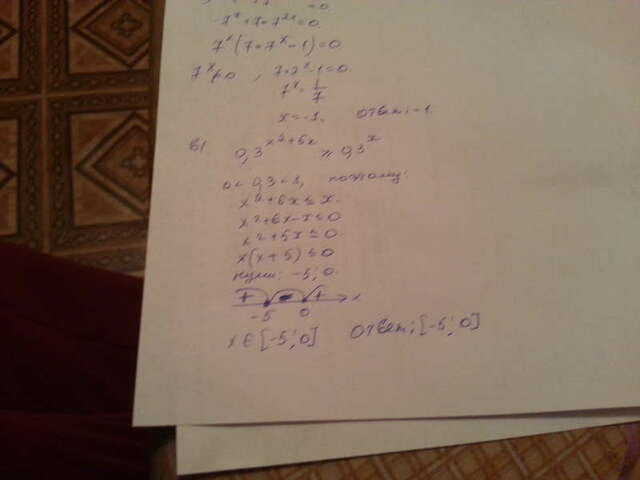 =0
-7ˣ+7·7²ˣ=0
7ˣ(7·7ˣ-1)=0
7ˣ≠0, 7·7ˣ-1=0
7ˣ=1/7
x=-1, ответ: -1.
в) 0,3^(x²+6x) ≥ 0,3^x
0<0,3<1, поэтому:
x²+6x≤x.
x²+6x-x≤0
x²+5x≤0
x(x+5)≤0
нули: -5; 0.
+ - + x
-5 0
x∈[-5;0] ответ: [-5;0]